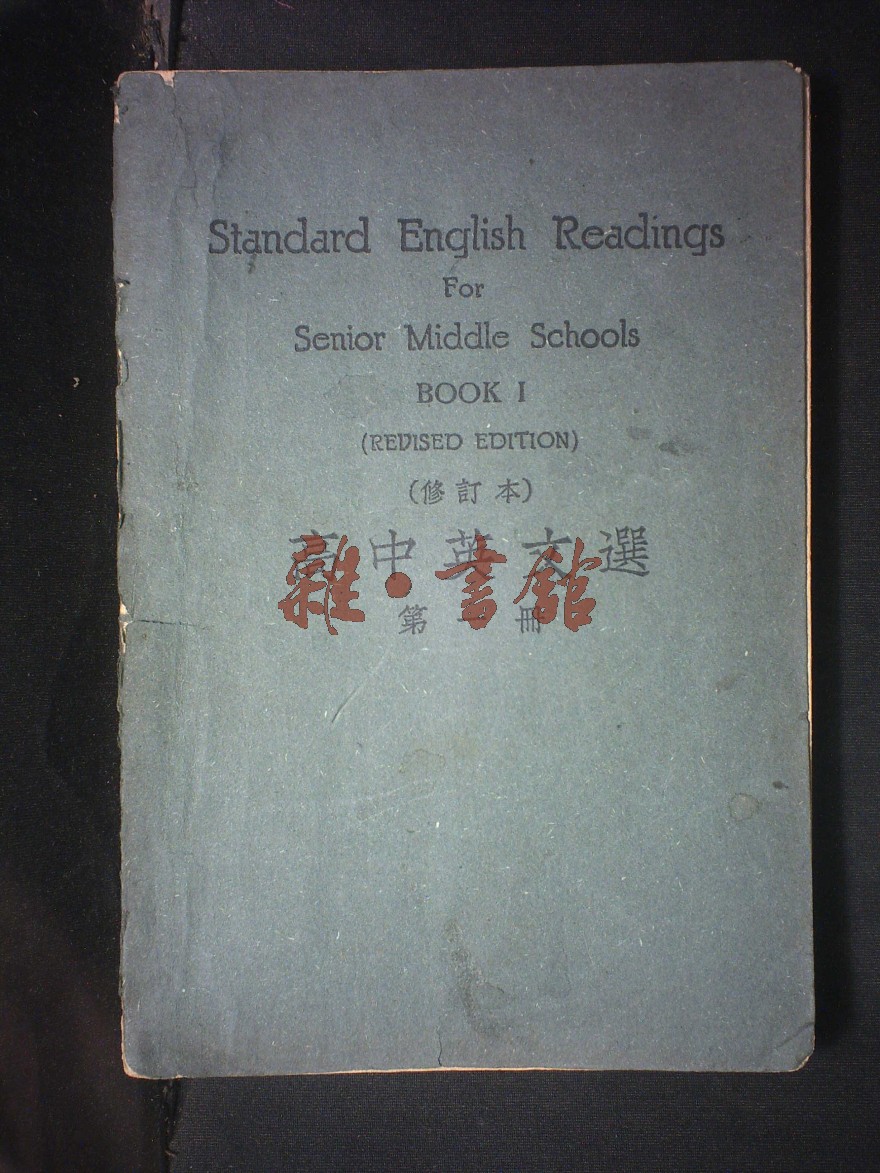 Standard English Readings
For
Senior Middle Schools
BOOK I
(REVISED EDITION)
(修訂本)
高中英文選
雜·書館
第一冊